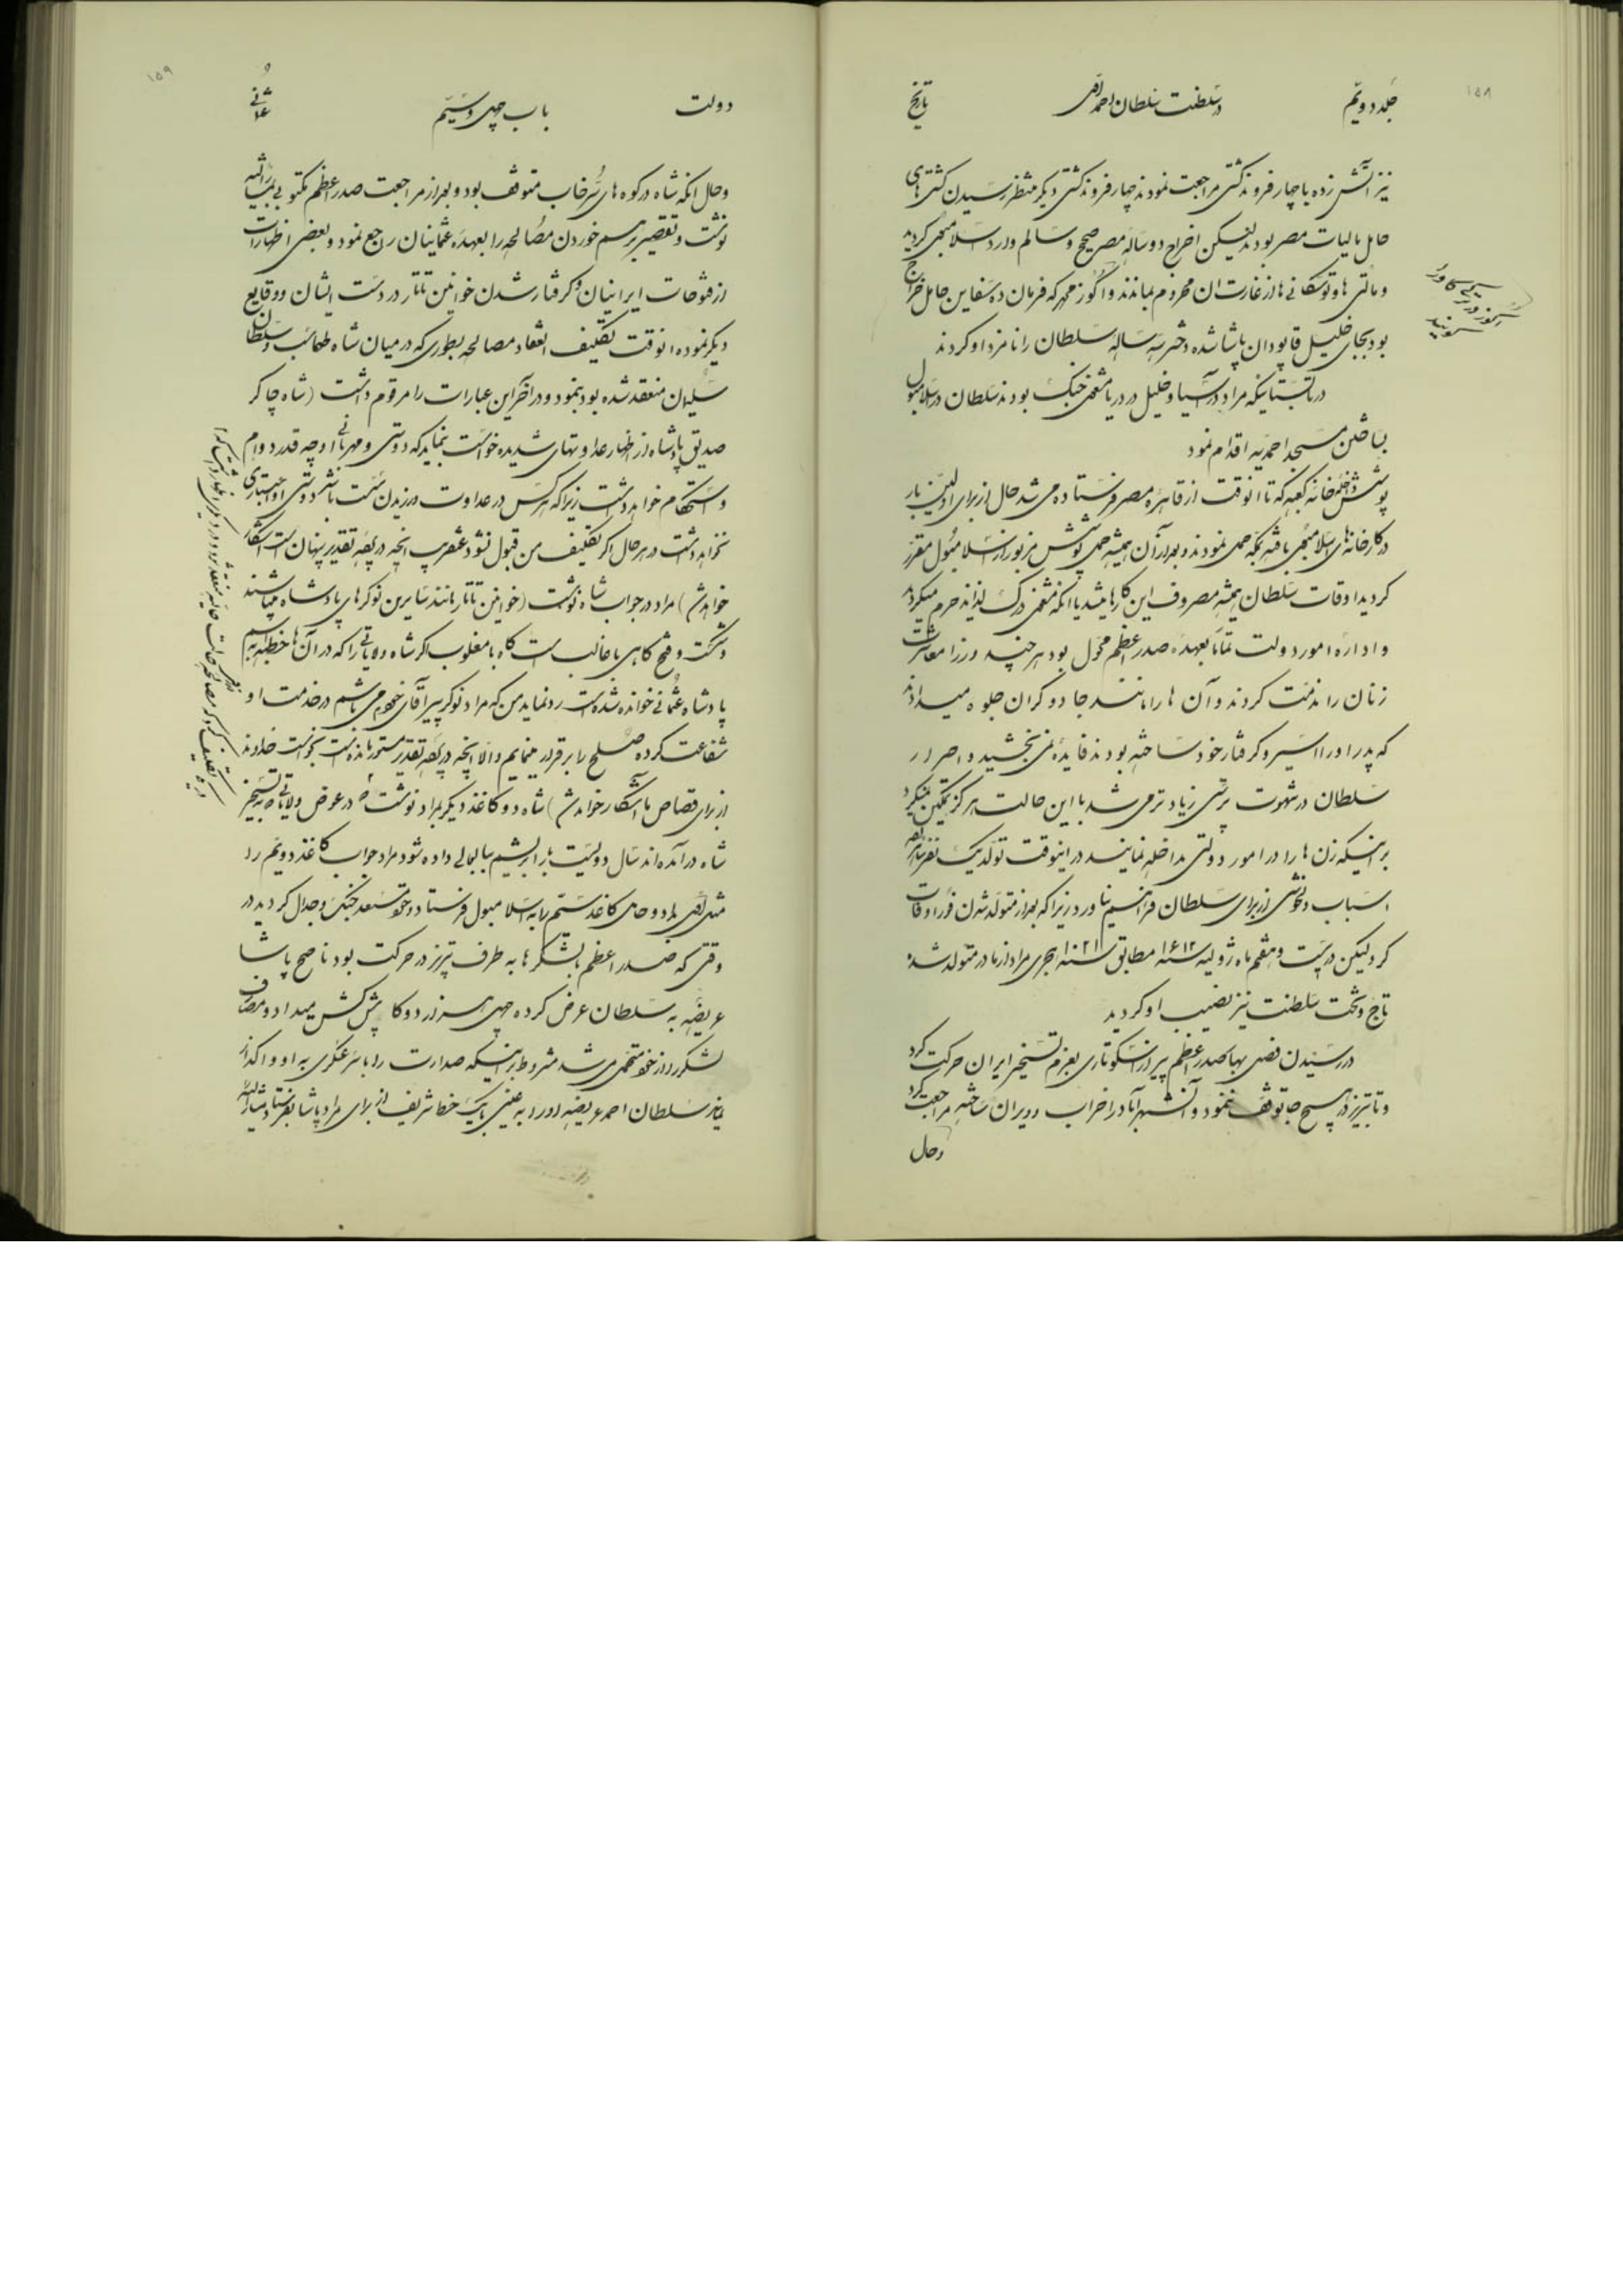 ۱۵۸
جلد دویم
در سلطنت سلطان احمد اول
تاریخ
نیز آتش زده با چهار فروند کشتی مراجعت نمودند چهار فروند کشتی دیگر منتظر رسیدن کشتی های
حامل مالیات مصر بودند لیکن اخراج دو ساله مصر صحیح و سالم وارد اسلامبول گردید
و مالتی ها و توسکانی ها از غارت آن محروم بماندند و اگوز محمد که فرمان ده سفاین حامل خراج
بود بجای خلیل قاپودان پاشا شده دختر سه ساله سلطان را نامزد او کردند
در تابستانیکه مراد در آسیا و خلیل در دریا مشغول جنگ بودند سلطان در اسلامبول
بساختن مسجد احمدیه اقدام نمود
پوشش خانه کعبه که تا آنوقت از قاهره مصر فرستاده می شد حال از برای اولین بار
در کارخانه های اسلامبول بافته بمکه حمل نمودند و بعد از آن همیشه حمل پوشش مزبور از اسلامبول مقرر
گردید اوقات سلطان همیشه مصروف این کارها میشد یا آنکه مشغول درک لذایذ حرم میگردید
و اداره امور دولت تماما بعهده صدر اعظم محول بود هر چند وزرا معاشرت
زنان را مذمت کردند و آن ها را مانند جادوگران جلوه میدادند
که پدر او را اسیر و گرفتار خود ساخته بودند فایده نمی بخشید و اصرار
سلطان در شهوت پرستی زیادتر می شد با این حالت هرگز تمکین نمیکرد
بر اینکه زن ها را در امور دولتی مداخله نمایند در اینوقت تولد یک نفر شاهزاده
اسباب دلخوشی از برای سلطان فراهم نیاورد زیرا که بعد از متولد شدن فورا وفات
کرد لیکن در بیست و هفتم ماه ژولیه سنه ۱۶۱۲ مطابق سنه ۱۰۲۱ هجری مراد از مادر متولد شده
تاج و تخت سلطنت نیز نصیب او گردید
در رسیدن فصل بهار صدر اعظم پیر از اسکوتاری بعزم تسخیر ایران حرکت کرد
و تا تبریز در هیچ جا توقف ننمود و آن شهر آباد را خراب و ویران ساخته مراجعت کرد
و حال
۱۵۹
دولت
باب چهل و سیم
عثمانی
وحال آنکه شاه در کوه های سرخاب متوقف بود و بعد از مراجعت صدر اعظم مکتوبی بمشارالیه
نوشت و تقصیر بر هم خوردن مصالحه را بعهده عثمانیان رجع نمود و بعضی اظهارات
از فتوحات ایرانیان و گرفتار شدن خوانین تاتار در دست ایشان و وقایع
دیگر نموده آنوقت تکلیف انعقاد مصالحه بطوری که در میان شاه طهماسب و سلطان
سلیمان منعقد شده بود بنمود و در آخر این عبارات را مرقوم داشت (شاه چاکر
صدیق پادشاه از اظهار عداوتهای شدیده خواست بنماید که دوستی و مهربانی او چه قدر دوام
و استحکام خواهد داشت زیرا که هر کس در عداوت ورزیدن سست باشد دوستی او اعتباری
نخواهد داشت در هر حال اگر تکلیف من قبول نشود عنقریب آنچه در پرده تقدیر پنهان است آشکار
خواهد شد) مراد در جواب شاه نوشت (خوانین تاتار مانند سایرین نوکرهای پادشاه میباشند
و شکست و فتح گاهی با غالب است گاه با مغلوب اگر شاه ولایاتی را که در آن ها خطبه به اسم
پادشاه عثمانی خوانده شده است رد نماید من که مراد نوکر پیر آقای خودم می باشم در خدمت او
شفاعت کرده صلح را برقرار مینمایم و الا آنچه در پرده تقدیر مستور مانده است بخواست خداوند
از برای قصاص ما آشکار خواهد شد) شاه دو کاغذ دیگر بمراد نوشت که در عوض ولایاتی که به تسخیر
شاه درآمده اند سال دویست بار ابریشم ببابعالی داده شود مراد جواب کاغذ دویم را
مثل اولی بداد و حامل کاغذ سیم را به اسلامبول فرستاد و خود مستعد جنگ و جدال گردید در
وقتی که صدر اعظم با لشکرها به طرف تبریز در حرکت بود ناصح پاشا
عریضه به سلطان عرض کرده چهل هزار دوکا پیش کش میداد و مصارف
لشکر را از خود متحمل می شد مشروط بر اینکه صدارت را با سرعسکری به او واگذار
نمایند سلطان احمد عریضه او را به عینه با یک خط شریف از برای مراد پاشا بفرستاد و مشارالیه